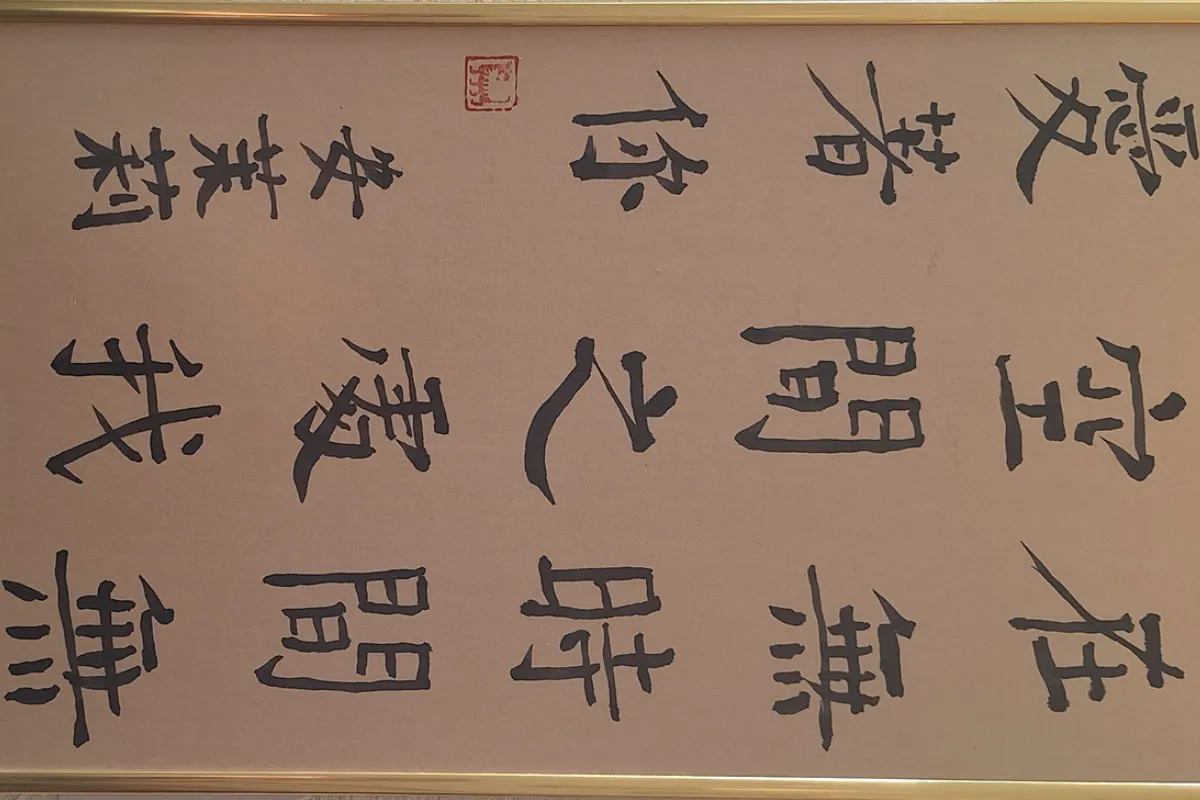 在無時間無
空間之處我
愛著你
安茱莉